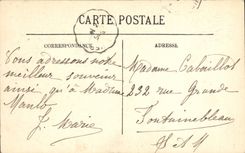 CARTE POSTALE
CORRESPONDANCE
ADRESSE
Vous adressons notre
meilleur souvenir
ainsi qu'à Madame
J. Marie
Madame
232 rue Grande
Fontainebleau
S & M